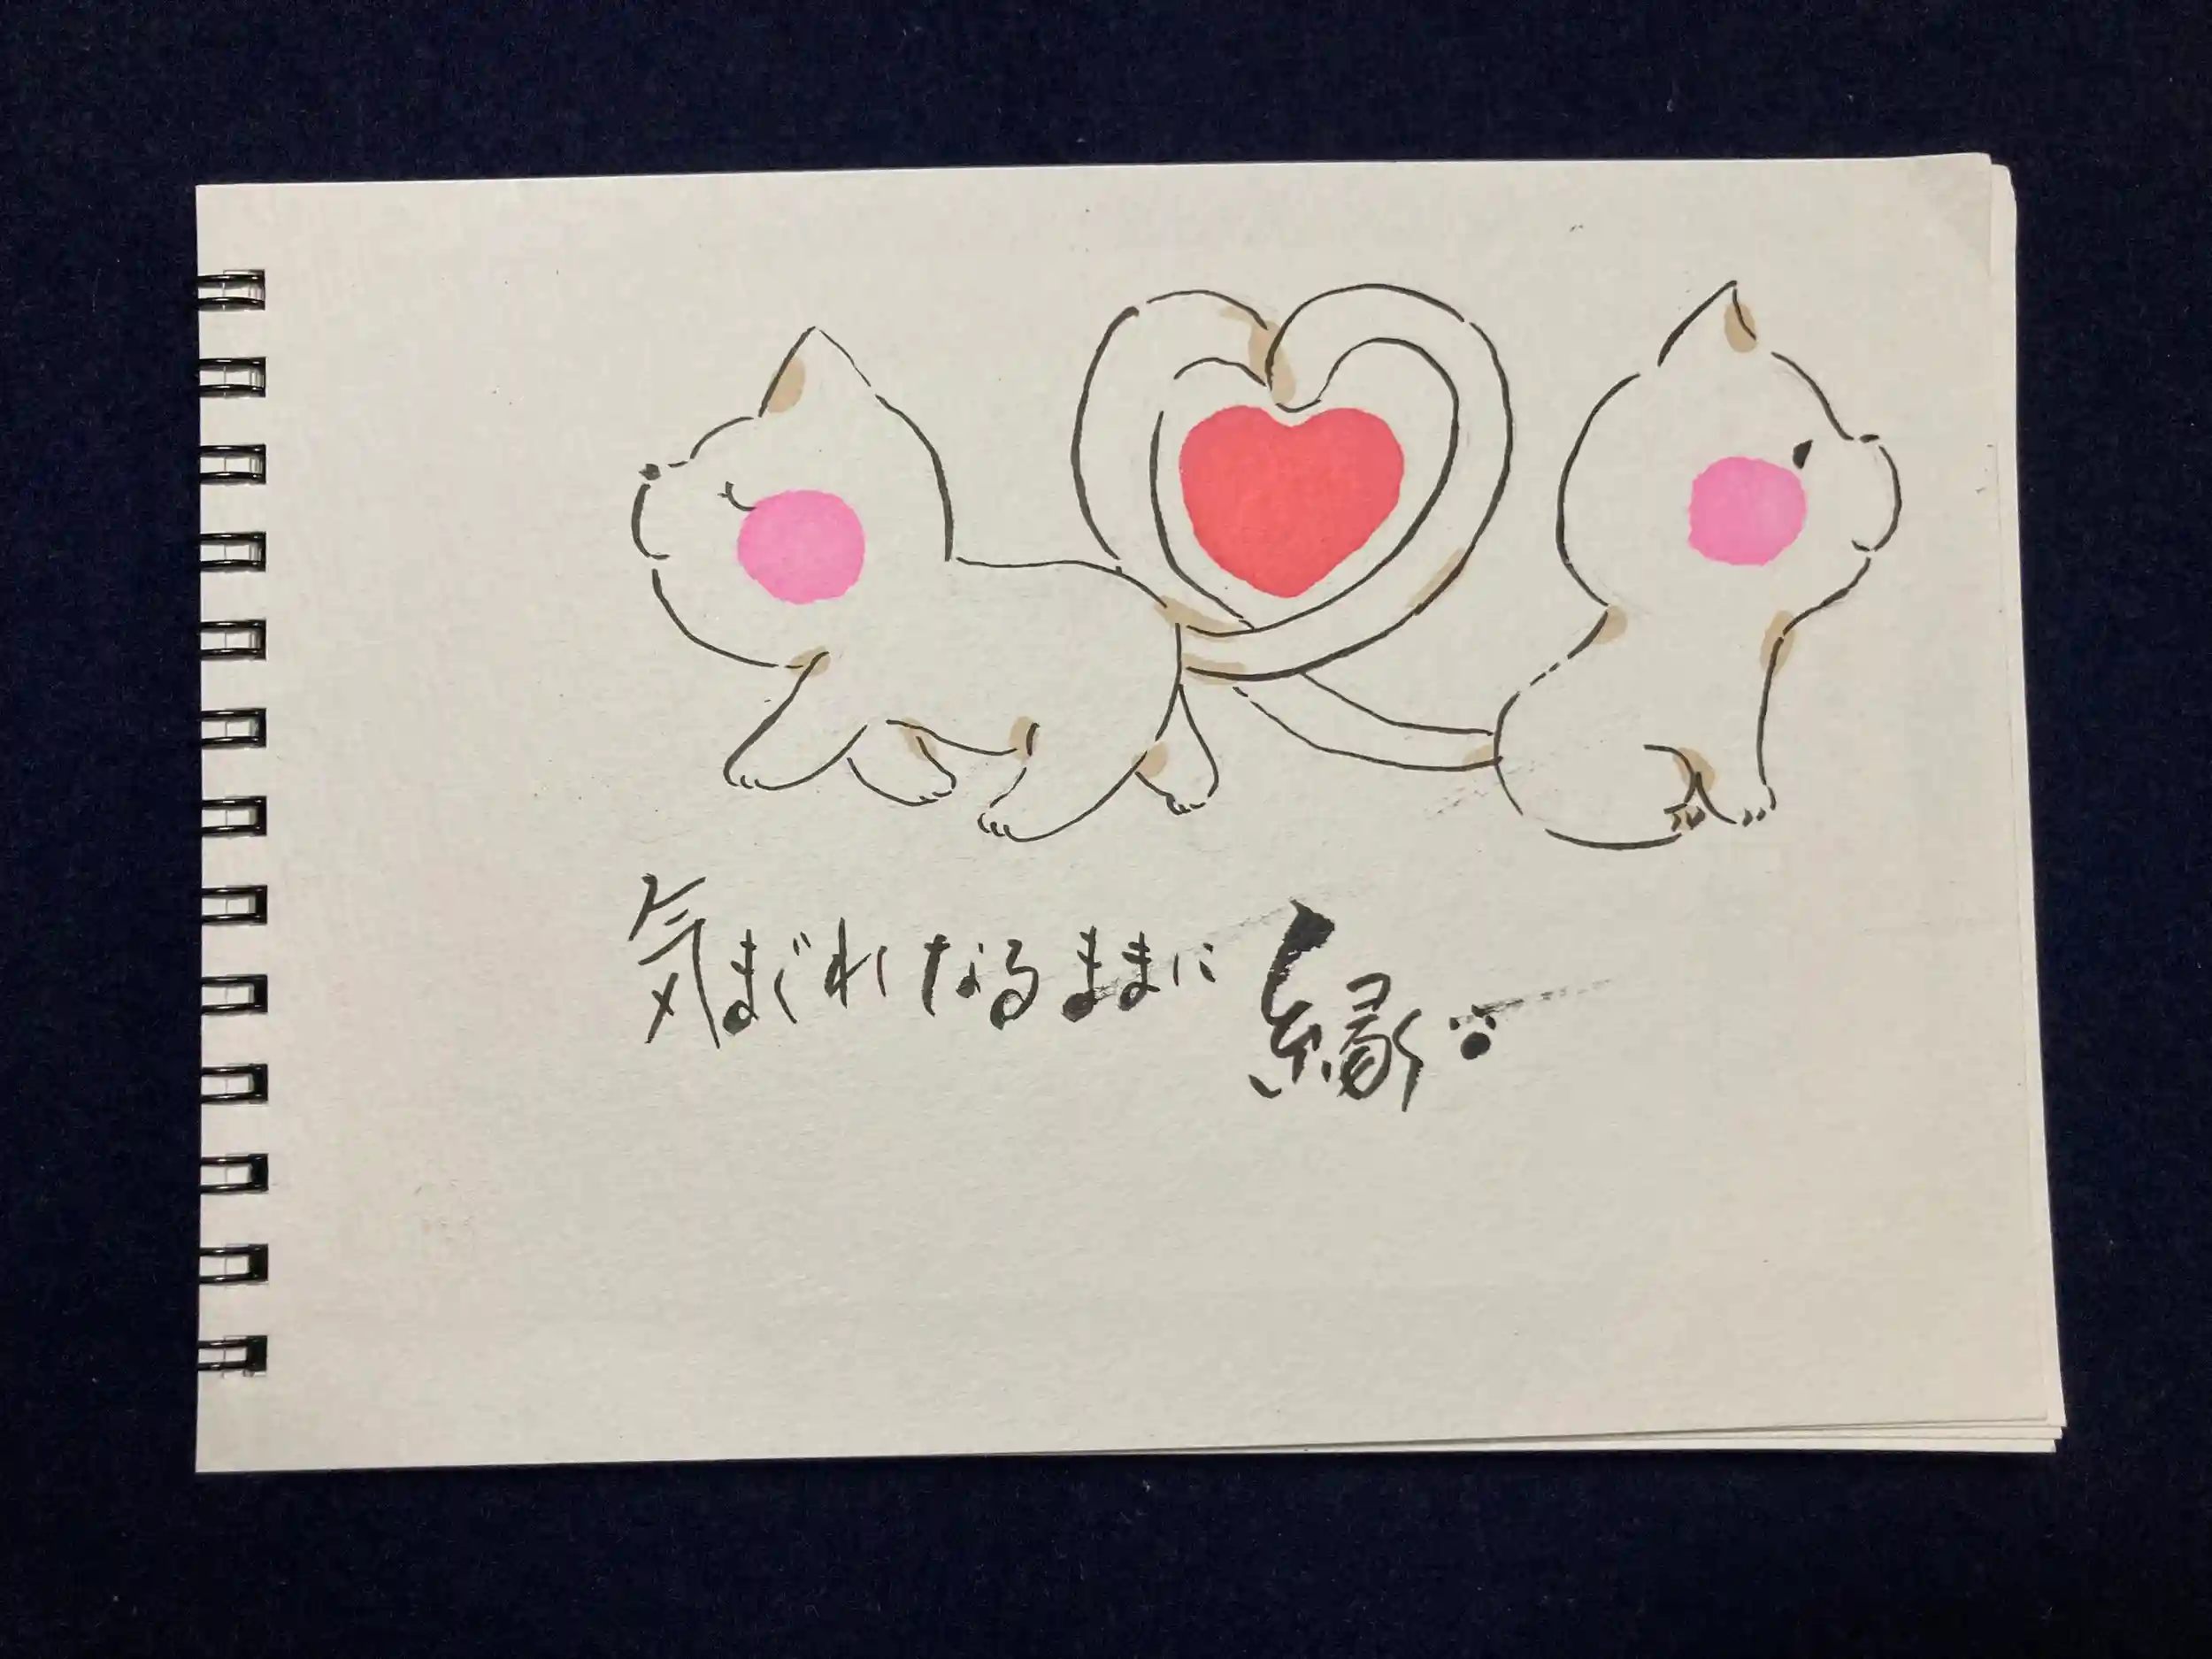 気まぐれなるままに縁